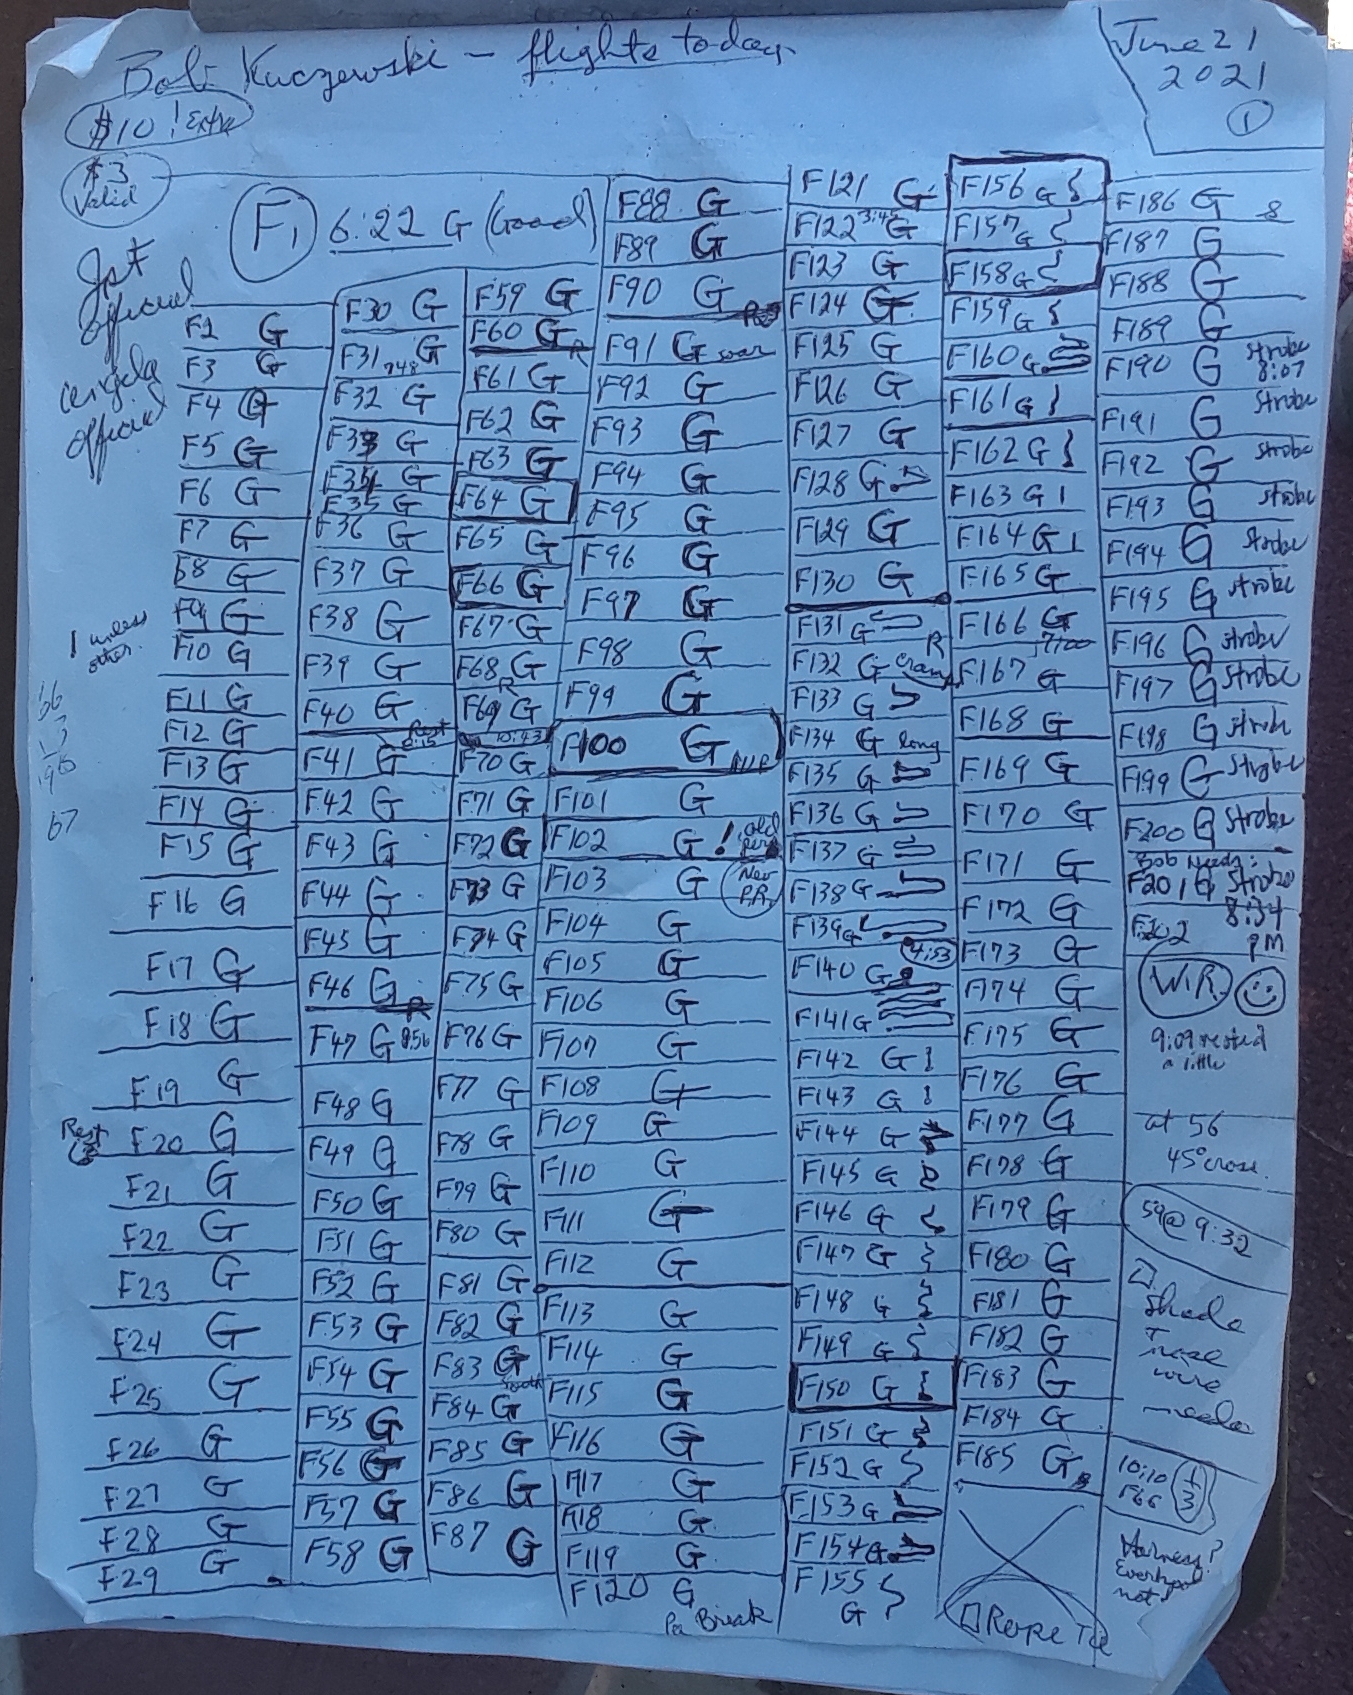 Bob Kuczewski - flights today
June 21
2021
1
$10 ! Extra
$3
Valid
F1 6:22 G (Good)
official
official
1 unless
other.
F2 G
F3 G
F4 G
F5 G
F6 G
F7 G
F8 G
F9 G
F10 G
F11 G
F12 G
F13 G
F14 G
F15 G
F16 G
F17 G
F18 G
F19 G
Rest
F20 G
F21 G
F22 G
F23 G
F24 G
F25 G
F26 G
F27 G
F28 G
F29 G
F30 G
F31 748 G
F32 G
F33 G
F34 G
F35 G
F36 G
F37 G
F38 G
F39 G
F40 G
Rest
F41 G
F42 G
F43 G
F44 G
F45 G
F46 G
R
F47 G
F48 G
F49 G
F50 G
F51 G
F52 G
F53 G
F54 G
F55 G
F56 G
F57 G
F58 G
F59 G
F60 G
R
F61 G
F62 G
F63 G
F64 G
F65 G
F66 G
F67 G
F68 G
R
F69 G
10:43
F70 G
F71 G
F72 G
F73 G
F74 G
F75 G
F76 G
F77 G
F78 G
F79 G
F80 G
F81 G
F82 G
F83 G
South
F84 G
F85 G
F86 G
F87 G
F88 G
F89 G
F90 G
F91 G
F92 G
F93 G
F94 G
F95 G
F96 G
F97 G
F98 G
F99 G
F100 G
F101 G
F102 G !
F103 G New
P.R.
F104 G
F105 G
F106 G
F107 G
F108 G
F109 G
F110 G
F111 G
F112 G
F113 G
F114 G
F115 G
F116 G
F117 G
F118 G
F119 G
F120 G
Break
F121 G
F122 3:45 G
F123 G
F124 G
F125 G
F126 G
F127 G
F128 G
F129 G
F130 G
F131 G
R
F132 G
F133 G
F134 G long
F135 G
F136 G
F137 G
F138 G
F139 G
4:53
F140 G
F141 G
F142 G
F143 G
F144 G
F145 G
F146 G
F147 G
F148 G
F149 G
F150 G
F151 G
F152 G
F153 G
F154 G
F155
G
F156 G
F157 G
F158 G
F159 G
F160 G
F161 G
F162 G
F163 G
F164 G
F165 G
F166 G
F167 G
F168 G
F169 G
F170 G
F171 G
F172 G
F173 G
F174 G
F175 G
F176 G
F177 G
F178 G
F179 G
F180 G
F181 G
F182 G
F183 G
F184 G
F185 G
Rope Tie
F186 G 8
F187 G
F188 G
F189 G
F190 G Strobe
8:07
F191 G Strobe
F192 G Strobe
F193 G Strobe
F194 G Strobe
F195 G Strobe
F196 G Strobe
F197 G Strobe
F198 G Strobe
F199 G Strobe
F200 G Strobe
Bob Needs:
F201 G Strobe
8:34
PM
F202
W.R.
9:09 rested
a little
at 56
45° cross.
59@ 9:32
Shade
Nose
wire
10:10
F66
1
3
Harness?
not!